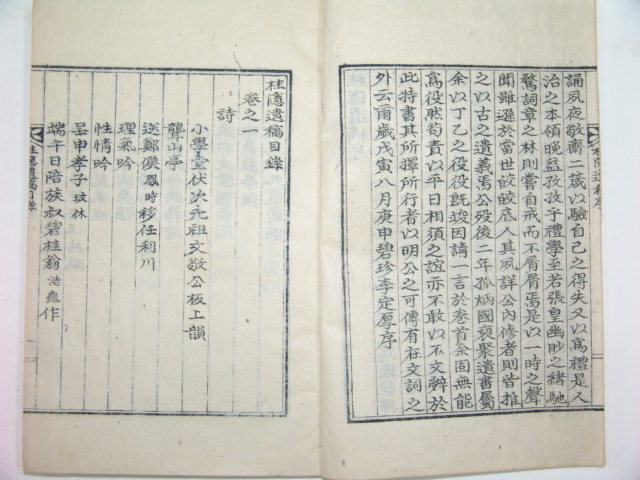 誦夙夜敬齋二箴以驗自己之得失又以爲禮是人
治之本領晚益孜孜乎禮學至若張皇幽眇之緖馳
騖詞章之林則嘗自戒而不屑屑焉是以一時之聲
聞雖遜於當世皎皎底人其夙詳公內修者則皆推
之以古之遺義焉公歿後二年孫炳國裒聚遺書屬
余以丁乙之役役旣竣因請一言於卷首余固無能
爲役然苟責以平日相須之誼亦不敢以不文辭於
此特書其所擇所行者以明公之可傳有在文詞之
外云爾歲戊寅八月庚申碧珍李定厚序
桂隱遺稿目錄
卷之一
詩
小學堂伏次先祖文敬公板上韻
聾山亭
送鄭侯鳳時移任利川
理氣吟
性情吟
呈申孝子玹休
端午日陪族叔碧桂翁浩龜作
桂隱遺稿目錄